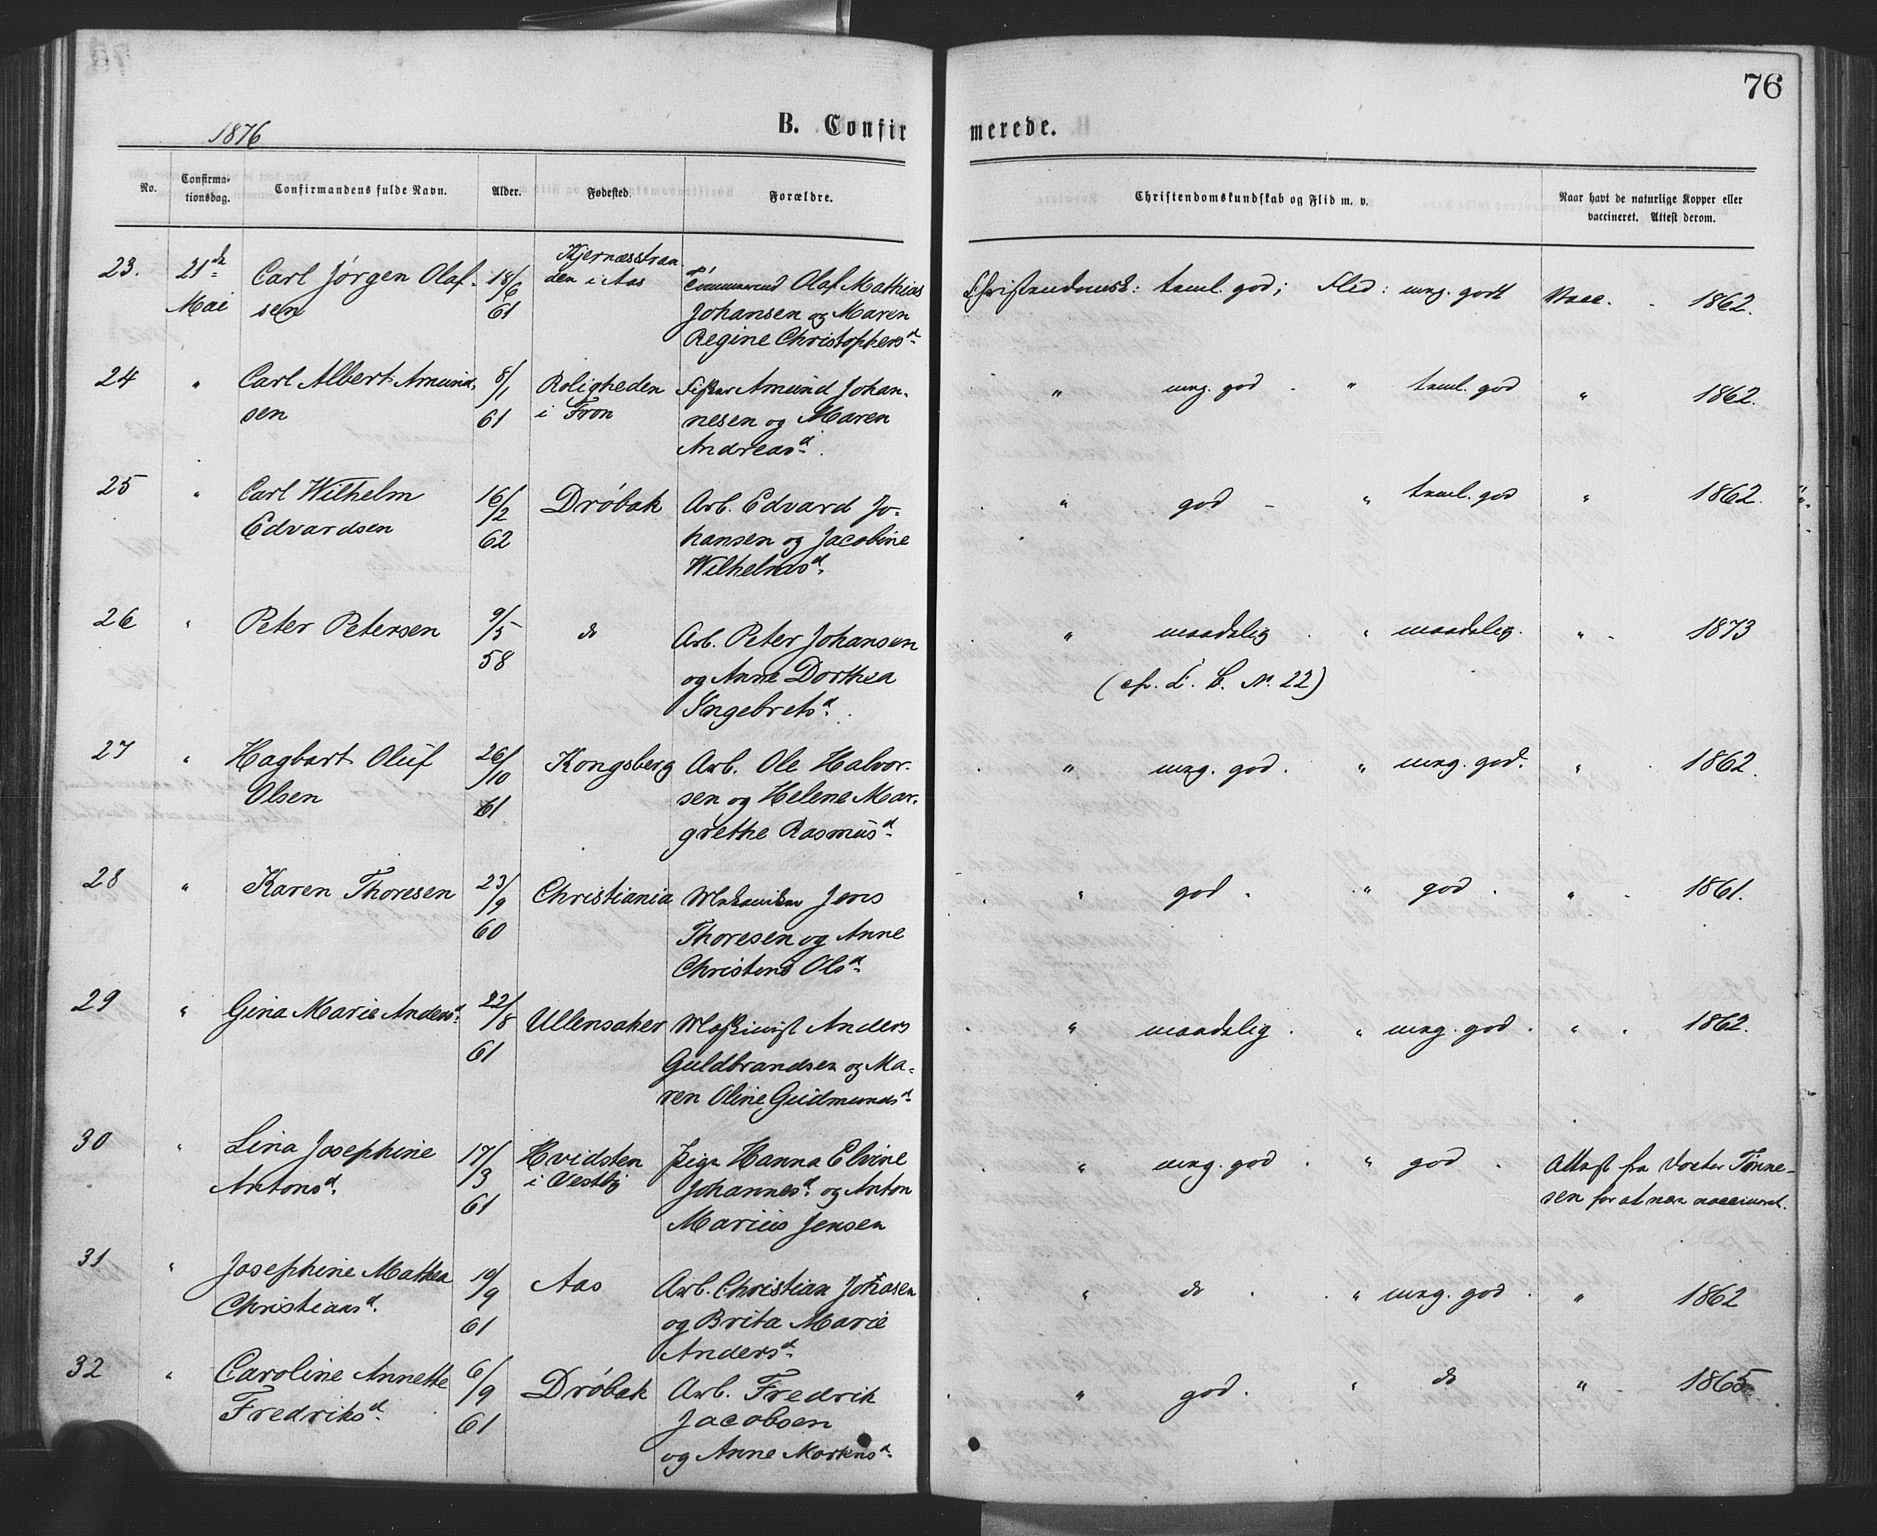 76
1876
B. Confirmerede.
No. Confirmationsdag. Confirmandens fulde Navn. Alder. Fødested. Forældre. Christendomskundskab og Flid m. v. Naar havt de naturlige Kopper eller vaccineret. Attest derom.
23. 21de Mai Carl Jørgen Olafsen 18/6 61 Kjernæsstranden i Aas Tømmermd Olaf Mathias Johansen og Maren Regine Christophersd. Christendomsk: taml. god; Flid: meg. godt Vacc. 1862.
24 " Carl Albert Amundsen 8/1 61 Roligheden i Fron Fisker Amund Johannesen og Maren Andreasd. " meg. god " taml. god " 1862.
25 " Carl Wilhelm Edvardsen 16/2 62 Drøbak Arb. Edvard Johansen og Jacobine Wilhelmsd. " god " taml. god " 1862.
26 " Peter Petersen 9/5 58 do Arb. Peter Johansen og Anne Dorthea Ingebretsd. " maadelig " maadelig. " 1873
(cfr. L. C. No. 22)
27 " Hagbart Oluf Olsen 26/10 61 Kongsberg Arb. Ole Halvorsen og Helene Margrethe Rasmusd. " meg. god. " meg. god. " 1862.
28 " Karen Thoresen 23/9 60 Christiania Mekaniker Jens Thoresen og Anne Christens Olsd. " god " god " 1861.
29 " Gina Marie Andersd. 22/8 61 Ullensaker Maskinist Anders Guldbrandsen og Maren Oline Gudmundsd. " maadelig " meg. god " 1862.
30 " Lina Josephine Antonsd. 17/3 61 Hvidsten i Vestby Pige Hanna Elvine Johannesd. og Anton Marius Jensen " meg. god " god Attest fra Doctor Tønnesen for at være vaccineret.
31 " Josephine Mathea Christiansd. 10/9 61 Aas Arb. Christian Johasen og Brita Marie Andersd. " do " meg. god " 1862
32 " Caroline Annette Fredriksd. 6/9 61 Drøbak Arb. Fredrik Jacobsen og Anne Mortensd. " god. " do " 1865